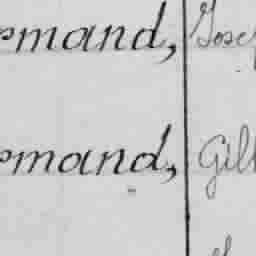 rmand, Jose
rmand, Gill